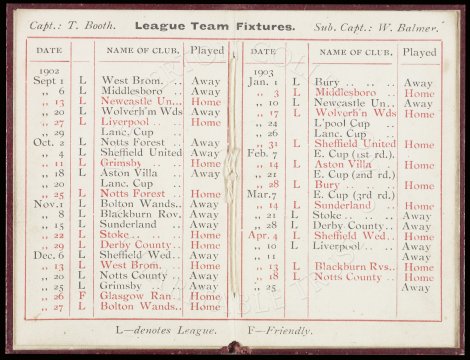 Capt.: T. Booth. League Team Fixtures. Sub. Capt.: W. Balmer.
DATE NAME OF CLUB. Played
1902
Sept 1 L West Brom. .. Away
„ 6 L Middlesboro .. Away
„ 13 L Newcastle Un... Home
„ 20 L Wolverh'm Wds Away
„ 27 L Liverpool .. .. Home
„ 29 Lanc. Cup
Oct. 2 L Notts Forest .. Away
„ 4 L Sheffield United Away
„ 11 L Grimsby .. Home
„ 18 L Aston Villa .. Away
„ 20 Lanc. Cup ..
„ 25 L Notts Forest .. Home
Nov. 1 L Bolton Wands.. Away
„ 8 L Blackburn Rov. Away
„ 15 L Sunderland .. Away
„ 22 L Stoke .. .. Home
„ 29 L Derby County.. Home
Dec. 6 L Sheffield Wed.. Away
„ 13 L West Brom. .. Home
„ 20 L Notts County .. Away
„ 25 L Grimsby .. Away
„ 26 F Glasgow Ran.. Home
„ 27 L Bolton Wands.. Home
DATE NAME OF CLUB. Played
1903
Jan. 1 L Bury .. .. .. Away
„ 3 L Middlesboro .. Home
„ 10 L Newcastle Un.. Away
„ 17 L Wolverh'm Wds Home
„ 24 L'pool Cup ..
„ 26 Lanc. Cup
„ 31 L Sheffield United Home
Feb. 7 E. Cup (1st rd.).
„ 14 L Aston Villa .. Home
„ 21 E. Cup (2nd rd.)
„ 28 L Bury .. .. Home
Mar. 7 E. Cup (3rd rd.)
„ 14 L Sunderland .. Home
„ 21 L Stoke .. .. .. Away
„ 28 L Derby County .. Away
Apr. 4 L Sheffield Wed.. Home
„ 10 L Liverpool.. .. Away
„ 11 Away
„ 13 L Blackburn Rvs.. Home
„ 18 L Notts County .. Home
„ 25 Away
L—denotes League. F—Friendly.